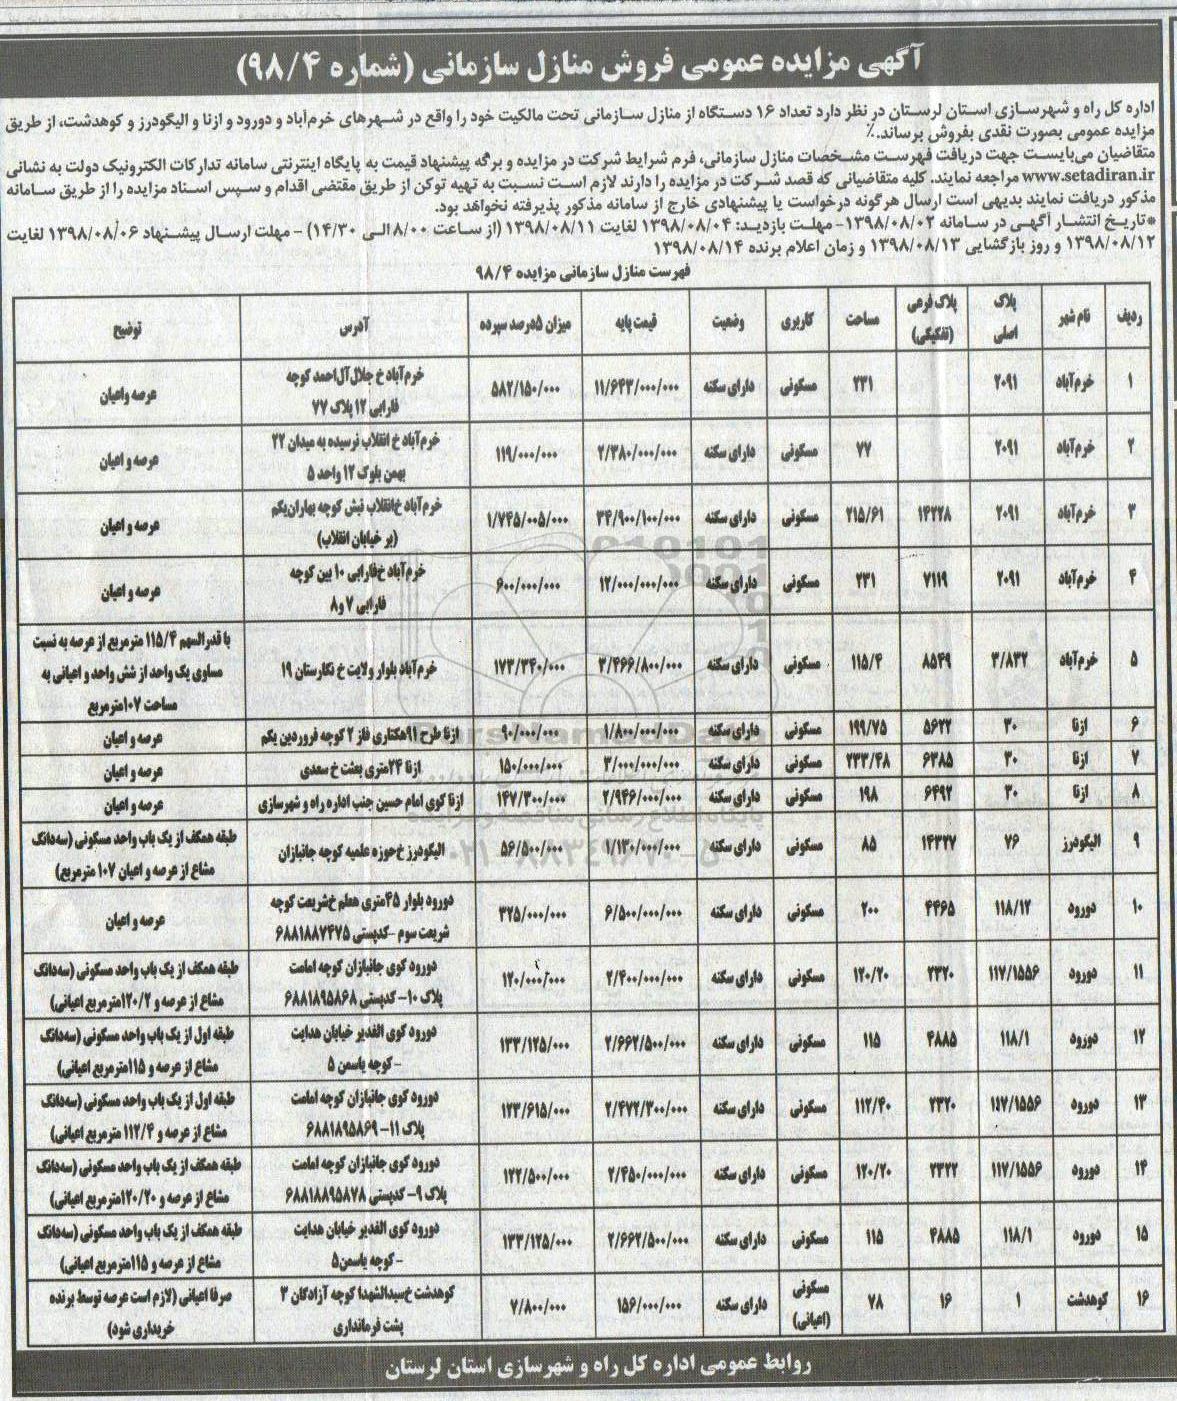 آگهی مزایده عمومی فروش منازل سازمانی (شماره ۹۸/۴)
اداره کل راه و شهرسازی استان لرستان در نظر دارد تعداد ۱۶ دستگاه از منازل سازمانی تحت مالکیت خود را واقع در شهرهای خرم‌آباد و دورود و ازنا و الیگودرز و کوهدشت، از طریق
مزایده عمومی بصورت نقدی بفروش برساند.٪
متقاضیان می‌بایست جهت دریافت فهرست مشخصات منازل سازمانی، فرم شرایط شرکت در مزایده و برگه پیشنهاد قیمت به پایگاه اینترنتی سامانه تدارکات الکترونیک دولت به نشانی
www.setadiran.ir مراجعه نمایند. کلیه متقاضیانی که قصد شرکت در مزایده را دارند لازم است نسبت به تهیه توکن از طریق مقتضی اقدام و سپس اسناد مزایده را از طریق سامانه
مذکور دریافت نمایند بدیهی است ارسال هرگونه درخواست یا پیشنهادی خارج از سامانه مذکور پذیرفته نخواهد بود.
*تاریخ انتشار آگهی در سامانه ۱۳۹۸/۰۸/۰۲- مهلت بازدید: ۱۳۹۸/۰۸/۰۴ لغایت ۱۳۹۸/۰۸/۱۱ (از ساعت ۸/۰۰ الی ۱۴/۳۰) – مهلت ارسال پیشنهاد ۱۳۹۸/۰۸/۰۶ لغایت
۱۳۹۸/۰۸/۱۲ و روز بازگشایی ۱۳۹۸/۰۸/۱۳ و زمان اعلام برنده ۱۳۹۸/۰۸/۱۴
فهرست منازل سازمانی مزایده ۹۸/۴
ردیف نام شهر پلاک اصلی پلاک فرعی (تفکیکی) مساحت کاربری وضعیت قیمت پایه میزان ۵درصد سپرده آدرس توضیح
۱ خرم‌آباد ۲۰۹۱ ۲۳۱ مسکونی دارای سکنه ۱۱/۶۴۳/۰۰۰/۰۰۰ ۵۸۲/۱۵۰/۰۰۰ خرم‌آباد خ جلال‌آل‌احمد کوچه فارابی ۱۲ پلاک ۷۷ عرصه واعیان
۲ خرم‌آباد ۲۰۹۱ ۷۷ مسکونی دارای سکنه ۲/۳۸۰/۰۰۰/۰۰۰ ۱۱۹/۰۰۰/۰۰۰ خرم‌آباد خ انقلاب نرسیده به میدان ۲۲ بهمن بلوک ۱۲ واحد ۵ عرصه و اعیان
۳ خرم‌آباد ۲۰۹۱ ۱۴۲۲۸ ۲۱۵/۶۱ مسکونی دارای سکنه ۳۴/۹۰۰/۱۰۰/۰۰۰ ۱/۷۴۵/۰۰۵/۰۰۰ خرم‌آباد خ‌انقلاب نبش کوچه بهاران‌یکم (بر خیابان انقلاب) عرصه و اعیان
۴ خرم‌آباد ۲۰۹۱ ۷۱۱۹ ۲۳۱ مسکونی دارای سکنه ۱۲/۰۰۰/۰۰۰/۰۰۰ ۶۰۰/۰۰۰/۰۰۰ خرم‌آباد خ‌فارابی ۱۰ بین کوچه فارابی ۷ و۸ عرصه و اعیان
۵ خرم‌آباد ۳/۸۳۲ ۸۵۴۹ ۱۱۵/۴ مسکونی دارای سکنه ۳/۴۶۶/۸۰۰/۰۰۰ ۱۷۳/۳۴۰/۰۰۰ خرم‌آباد بلوار ولایت خ نگارستان ۱۹ با قدرالسهم ۱۱۵/۴ مترمربع از عرصه به نسبت مساوی یک واحد از شش واحد و اعیانی به مساحت ۱۰۷مترمربع
۶ ازنا ۳۰ ۵۶۲۲ ۱۹۹/۷۵ مسکونی دارای سکنه ۱/۸۰۰/۰۰۰/۰۰۰ ۹۰/۰۰۰/۰۰۰ ازنا طرح ۹۱هکتاری فاز ۲ کوچه فروردین یکم عرصه و اعیان
۷ ازنا ۳۰ ۶۳۸۵ ۲۳۳/۴۸ مسکونی دارای سکنه ۳/۰۰۰/۰۰۰/۰۰۰ ۱۵۰/۰۰۰/۰۰۰ ازنا ۲۴متری بعثت خ سعدی عرصه و اعیان
۸ ازنا ۳۰ ۶۴۹۲ ۱۹۸ مسکونی دارای سکنه ۲/۹۴۶/۰۰۰/۰۰۰ ۱۴۷/۳۰۰/۰۰۰ ازنا کوی امام حسین جنب اداره راه و شهرسازی عرصه و اعیان
۹ الیگودرز ۷۶ ۱۴۳۲۷ ۸۵ مسکونی دارای سکنه ۱/۱۳۰/۰۰۰/۰۰۰ ۵۶/۵۰۰/۰۰۰ الیگودرز خ‌حوزه علمیه کوچه جانبازان طبقه همکف از یک باب واحد مسکونی (سه‌دانگ مشاع از عرصه و اعیان ۱۰۷ مترمربع)
۱۰ دورود ۱۱۸/۱۲ ۴۴۶۵ ۲۰۰ مسکونی دارای سکنه ۶/۵۰۰/۰۰۰/۰۰۰ ۳۲۵/۰۰۰/۰۰۰ دورود بلوار ۴۵متری معلم خ‌شریعت کوچه شریعت سوم –کدپستی ۶۸۸۱۸۸۷۴۷۵ عرصه و اعیان
۱۱ دورود ۱۱۷/۱۵۵۶ ۲۳۲۰ ۱۲۰/۲۰ مسکونی دارای سکنه ۲/۴۰۰/۰۰۰/۰۰۰ ۱۲۰/۰۰۰/۰۰۰ دورود کوی جانبازان کوچه امامت پلاک ۱۰– کدپستی ۶۸۸۱۸۹۵۸۶۸ طبقه همکف از یک باب واحد مسکونی (سه‌دانگ مشاع از عرصه و ۱۲۰/۲مترمربع اعیانی)
۱۲ دورود ۱۱۸/۱ ۴۸۸۵ ۱۱۵ مسکونی دارای سکنه ۲/۶۶۲/۵۰۰/۰۰۰ ۱۳۳/۱۲۵/۰۰۰ دورود کوی الغدیر خیابان هدایت –کوچه یاسمن ۵ طبقه اول از یک باب واحد مسکونی (سه‌دانگ مشاع از عرصه و ۱۱۵مترمربع اعیانی)
۱۳ دورود ۱۱۷/۱۵۵۶ ۲۳۲۰ ۱۱۲/۴۰ مسکونی دارای سکنه ۲/۴۷۲/۳۰۰/۰۰۰ ۱۲۳/۶۱۵/۰۰۰ دورود کوی جانبازان کوچه امامت پلاک ۱۱– ۶۸۸۱۸۹۵۸۶۹ طبقه اول از یک باب واحد مسکونی (سه‌دانگ مشاع از عرصه و ۱۱۲/۴ مترمربع اعیانی)
۱۴ دورود ۱۱۷/۱۵۵۶ ۲۳۲۲ ۱۲۰/۲۰ مسکونی دارای سکنه ۲/۴۵۰/۰۰۰/۰۰۰ ۱۲۲/۵۰۰/۰۰۰ دورود کوی جانبازان کوچه امامت پلاک ۹– کدپستی ۶۸۸۱۸۸۹۵۸۷۸ طبقه همکف از یک باب واحد مسکونی (سه‌دانگ مشاع از عرصه و ۱۲۰/۲۰مترمربع اعیانی)
۱۵ دورود ۱۱۸/۱ ۴۸۸۵ ۱۱۵ مسکونی دارای سکنه ۲/۶۶۲/۵۰۰/۰۰۰ ۱۳۳/۱۲۵/۰۰۰ دورود کوی الغدیر خیابان هدایت –کوچه یاسمن۵ طبقه همکف از یک باب واحد مسکونی (سه‌دانگ مشاع از عرصه و ۱۱۵مترمربع اعیانی)
۱۶ کوهدشت ۱ ۱۶ ۷۸ مسکونی (اعیانی) دارای سکنه ۱۵۶/۰۰۰/۰۰۰ ۷/۸۰۰/۰۰۰ کوهدشت خ‌سیدالشهدا کوچه آزادگان ۳ پشت فرمانداری صرفا اعیانی (لازم است عرصه توسط برنده خریداری شود)
روابط عمومی اداره کل راه و شهرسازی استان لرستان